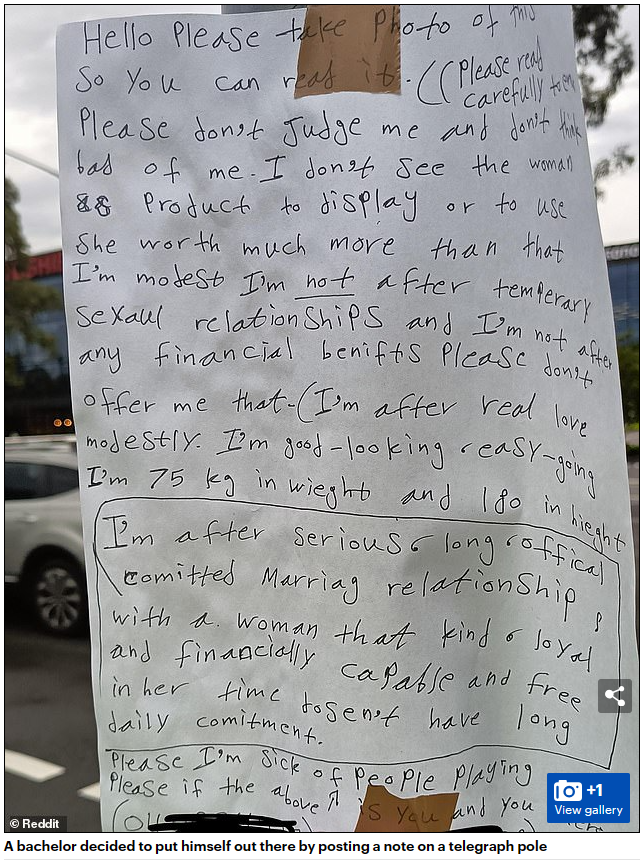 Hello Please take Photo of this
So You can read it. ((Please read
carefully
Please don't Judge me and don't think
bad of me. I don't see the woman
as Product to display or to use
She worth much more than that
I'm modest I'm not after temperary
sexaul relationships and I'm not after
any financial benifts Please don't
offer me that-(I'm after real love
modestly. I'm good-looking easy-going
I'm 75 kg in wieght and 180 in hieght
I'm after serious long offical
comitted Marriag relationship
with a woman that kind loyal
and financially capable and free
in her time dosen't have long
daily comitment.
Please I'm sick of People Playing
Please if the above is you and you
© Reddit
+1
View gallery
A bachelor decided to put himself out there by posting a note on a telegraph pole